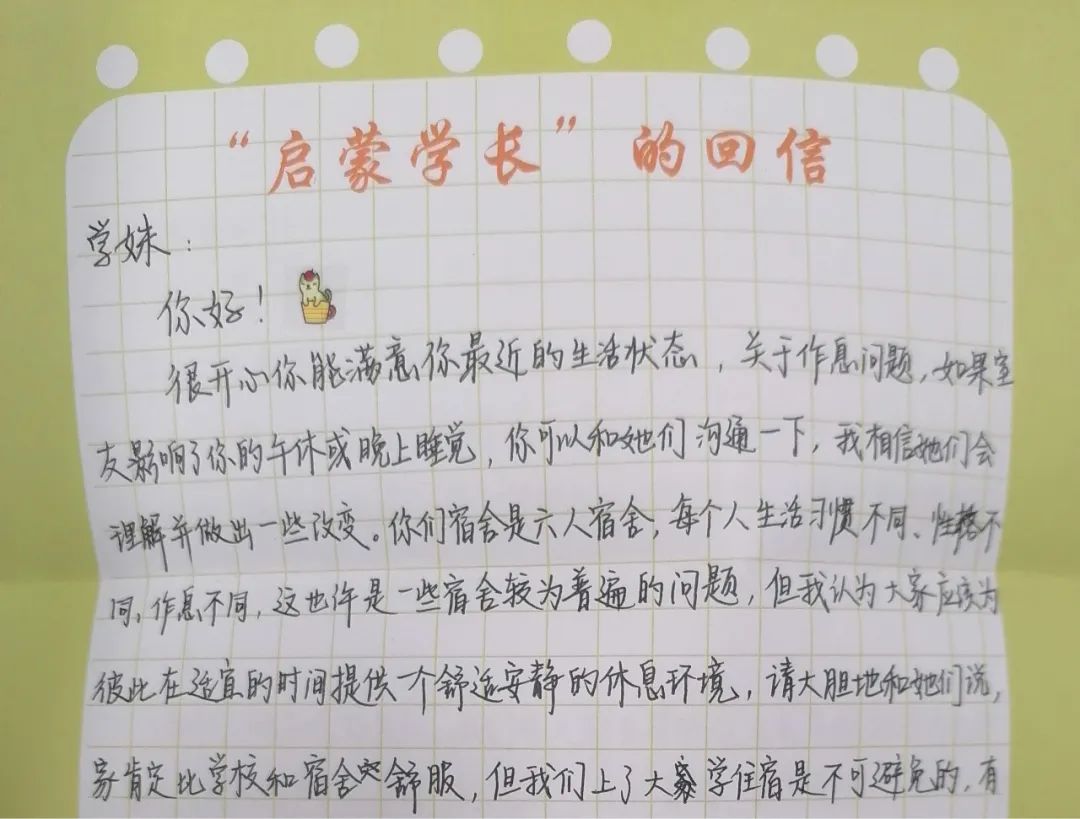 “启蒙学长”的回信
学妹：
你好！
很开心你能满意你最近的生活状态，关于作息问题，如果室
友影响了你的午休或晚上睡觉，你可以和她们沟通一下，我相信她们会
理解并做出一些改变。你们宿舍是六人宿舍，每个人生活习惯不同、性格不
同，作息不同，这也许是一些宿舍较为普遍的问题，但我认为大家应该为
彼此在适宜的时间提供一个舒适安静的休息环境，请大胆地和她们说，
家肯定比学校和宿舍舒服，但我们上了大学住宿是不可避免的，有